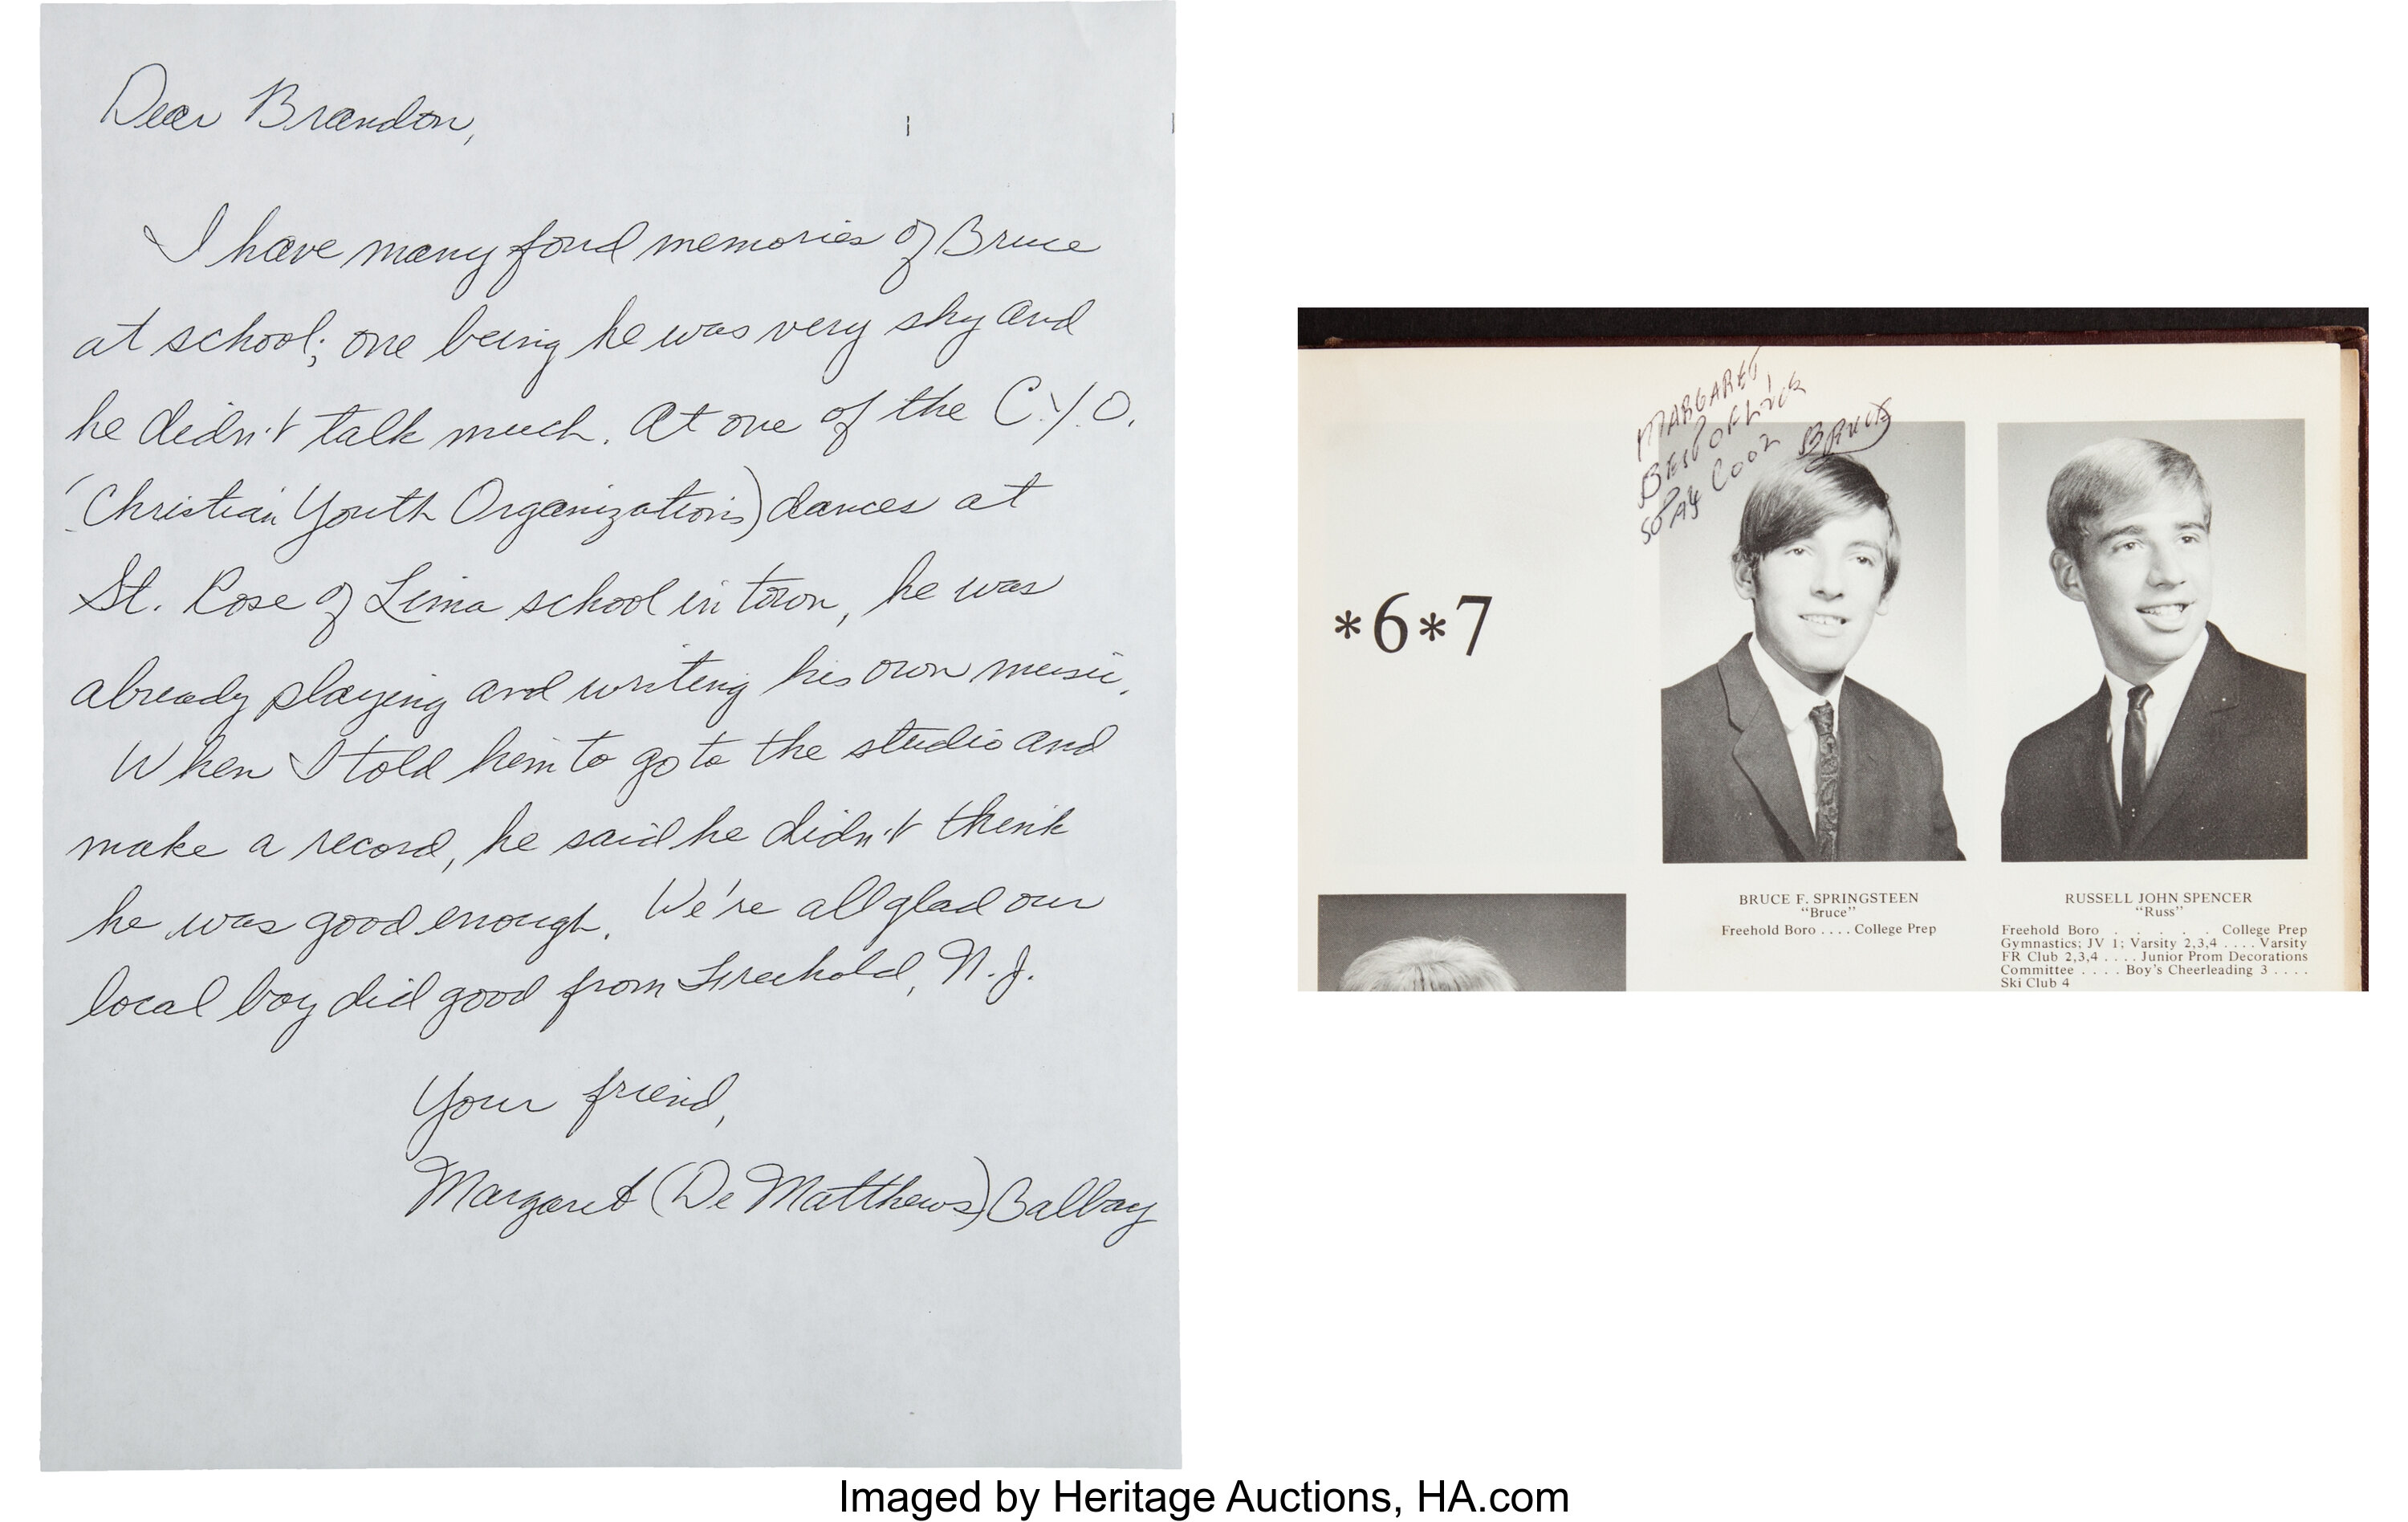 Dear Brandon,
I have many fond memories of Bruce
at school; one being he was very shy and
he didn't talk much. At one of the C.Y.O.
(Christian Youth Organizations) dances at
St. Rose of Lima school in town, he was
already playing and writing his own music.
When I told him to go to the studio and
make a record, he said he didn't think
he was good enough. We're all glad our
local boy did good from Freehold, N.J.
Your friend,
Margaret (De Matthews) Balbay
MARGARET,
BEST OF LUCK
STAY COOL BRUCE
*6*7
BRUCE F. SPRINGSTEEN
"Bruce"
Freehold Boro .... College Prep
RUSSELL JOHN SPENCER
"Russ"
Freehold Boro . . . . . College Prep
Gymnastics; JV 1; Varsity 2,3,4 .... Varsity
FR Club 2,3,4 .... Junior Prom Decorations
Committee .... Boy's Cheerleading 3 ....
Ski Club 4
Imaged by Heritage Auctions, HA.com